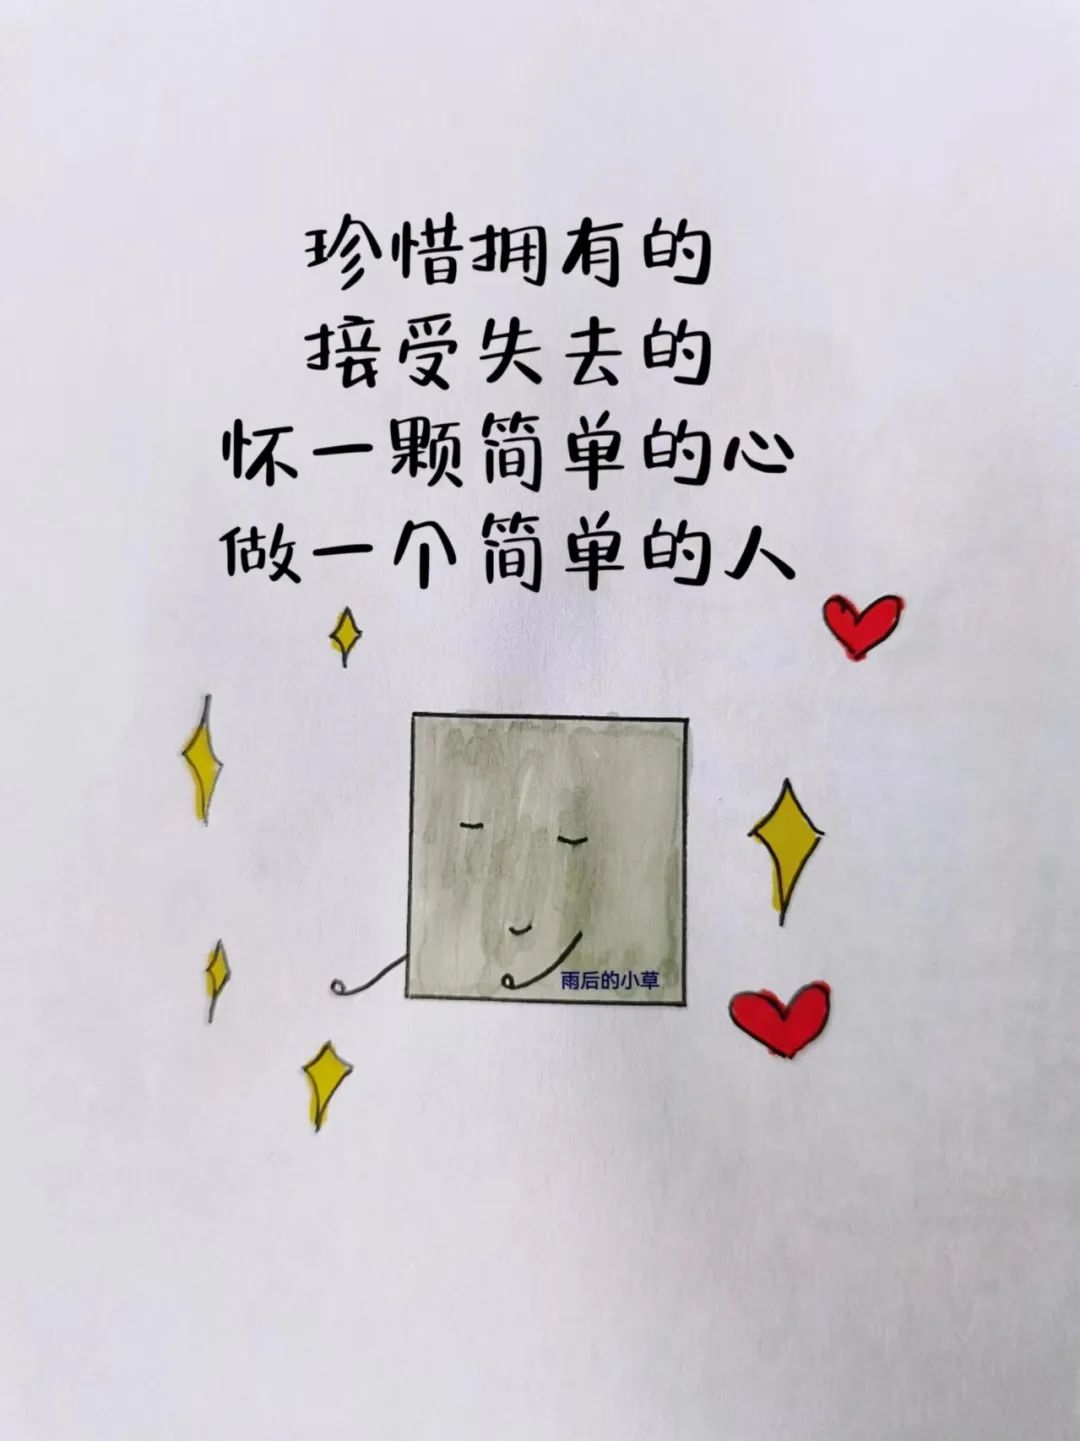 珍惜拥有的
接受失去的
怀一颗简单的心
做一个简单的人
雨后的小草